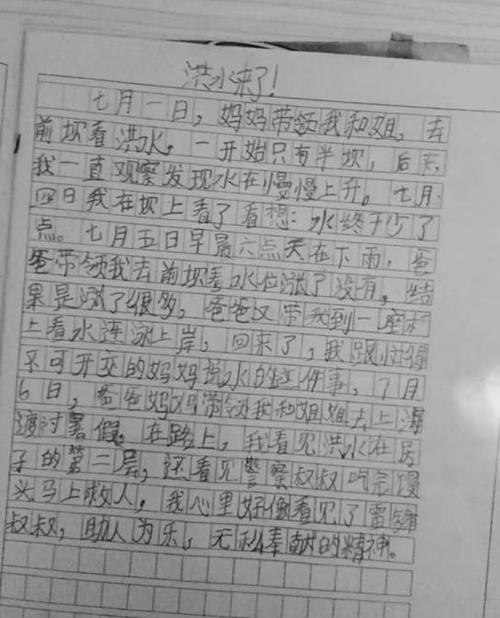 洪水来了!
七月一日，妈妈带领我和姐，去
前坝看洪水，一开始只有半坝，后来
我一直观察发现水在慢慢上升。七月
四日我在坝上看了看想：水终于少了
点。七月五日早晨六点天在下雨，爸
爸带领我去前坝看水位涨了没有，结
果是涨了很多，爸爸又带我到一座桥
上看水连泳上岸，回来了，我跟忙得
不可开交的妈妈说水的这件事，7月
6日，爸爸妈妈带领我和姐姐去上海
渡过暑假。在路上，我看见洪水在房
子的第二层，还看见警察叔叔吃完馒
头马上救人，我心里好像看见了雷锋
叔叔，助人为乐，无私奉献的精神。